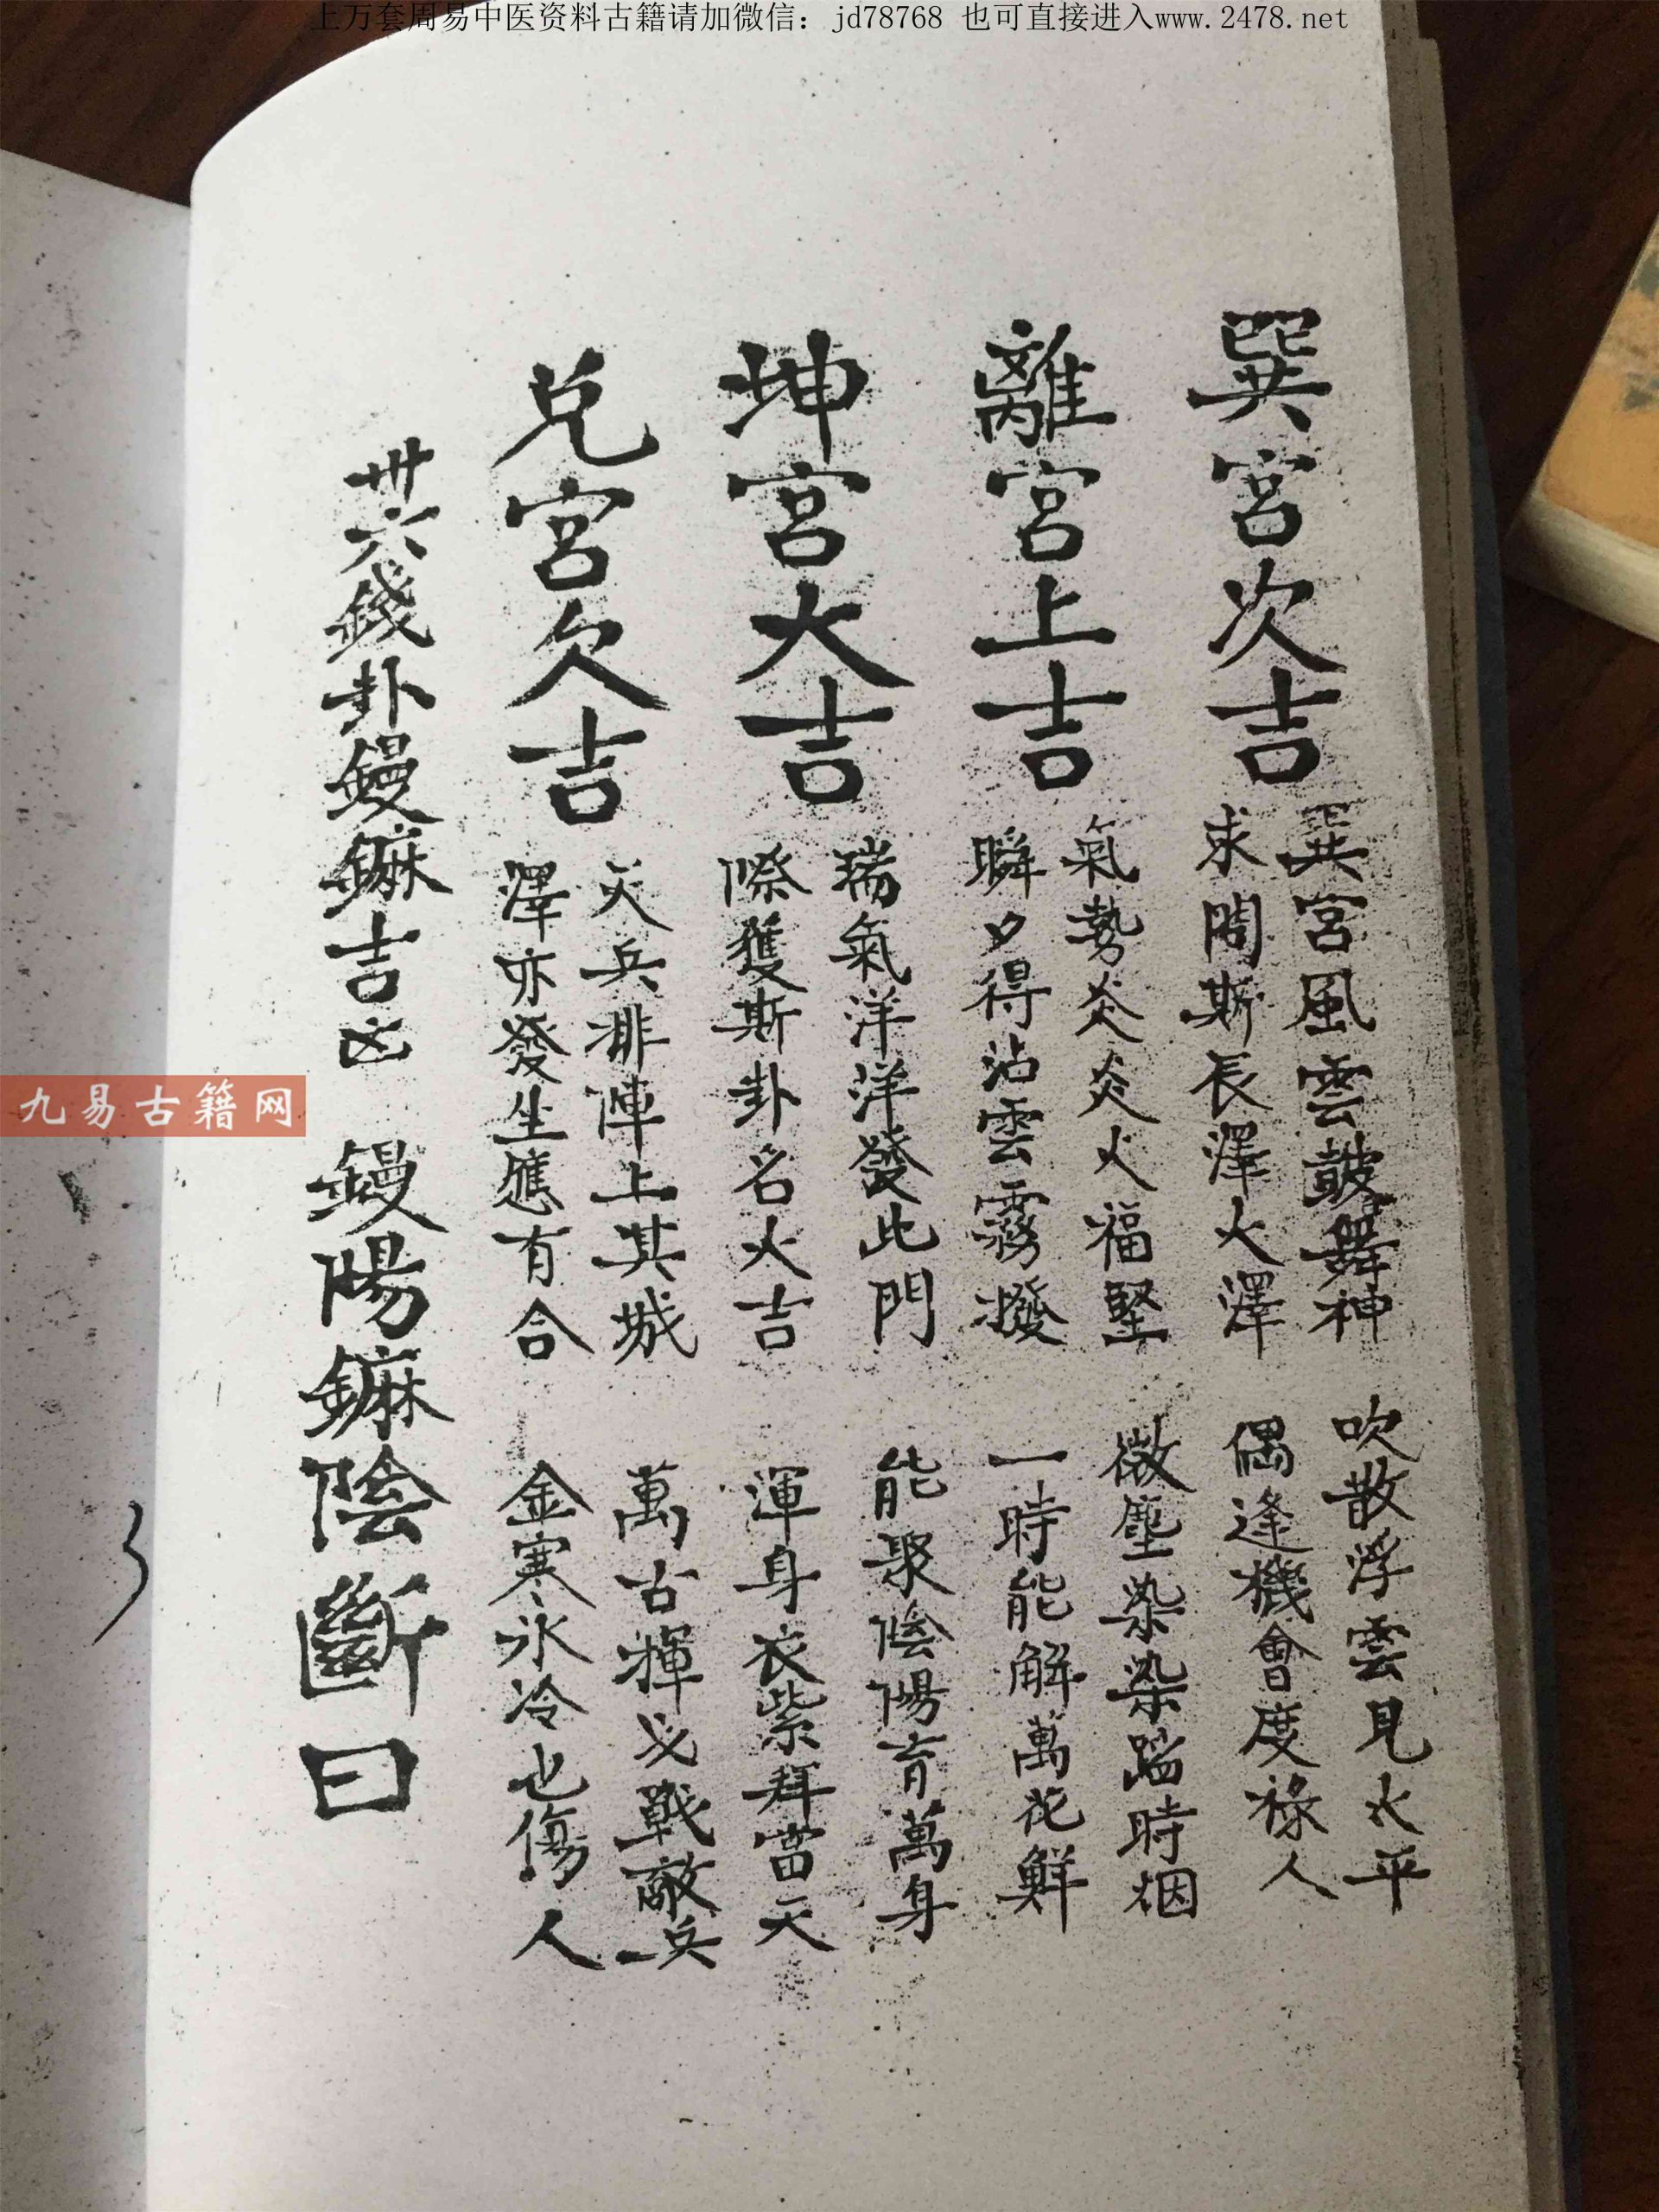 上万套周易中医资料古籍请加微信：jd78768 也可直接进入www.2478.net
巽宮次吉
巽宮風雲鼓舞神 吹散浮雲見太平
求問斯辰澤火澤 偶逢機會度祿人
離宮上吉
氣勢炎炎火福堅 微塵染染踏時烟
瞬夕得沾雲霧撥 一時能解萬花鮮
坤宮大吉
瑞氣洋洋發此門 能聚陰陽育萬身
際獲斯卦名大吉 渾身衣紫拜當天
兌宮欠吉
天兵排陣上其城 萬古揮戈戰敵兵
澤亦發生應有合 金寒水冷也傷人
卅六錢卦鏝鏞吉凶 鏝陽鏞陰斷曰
九易古籍网